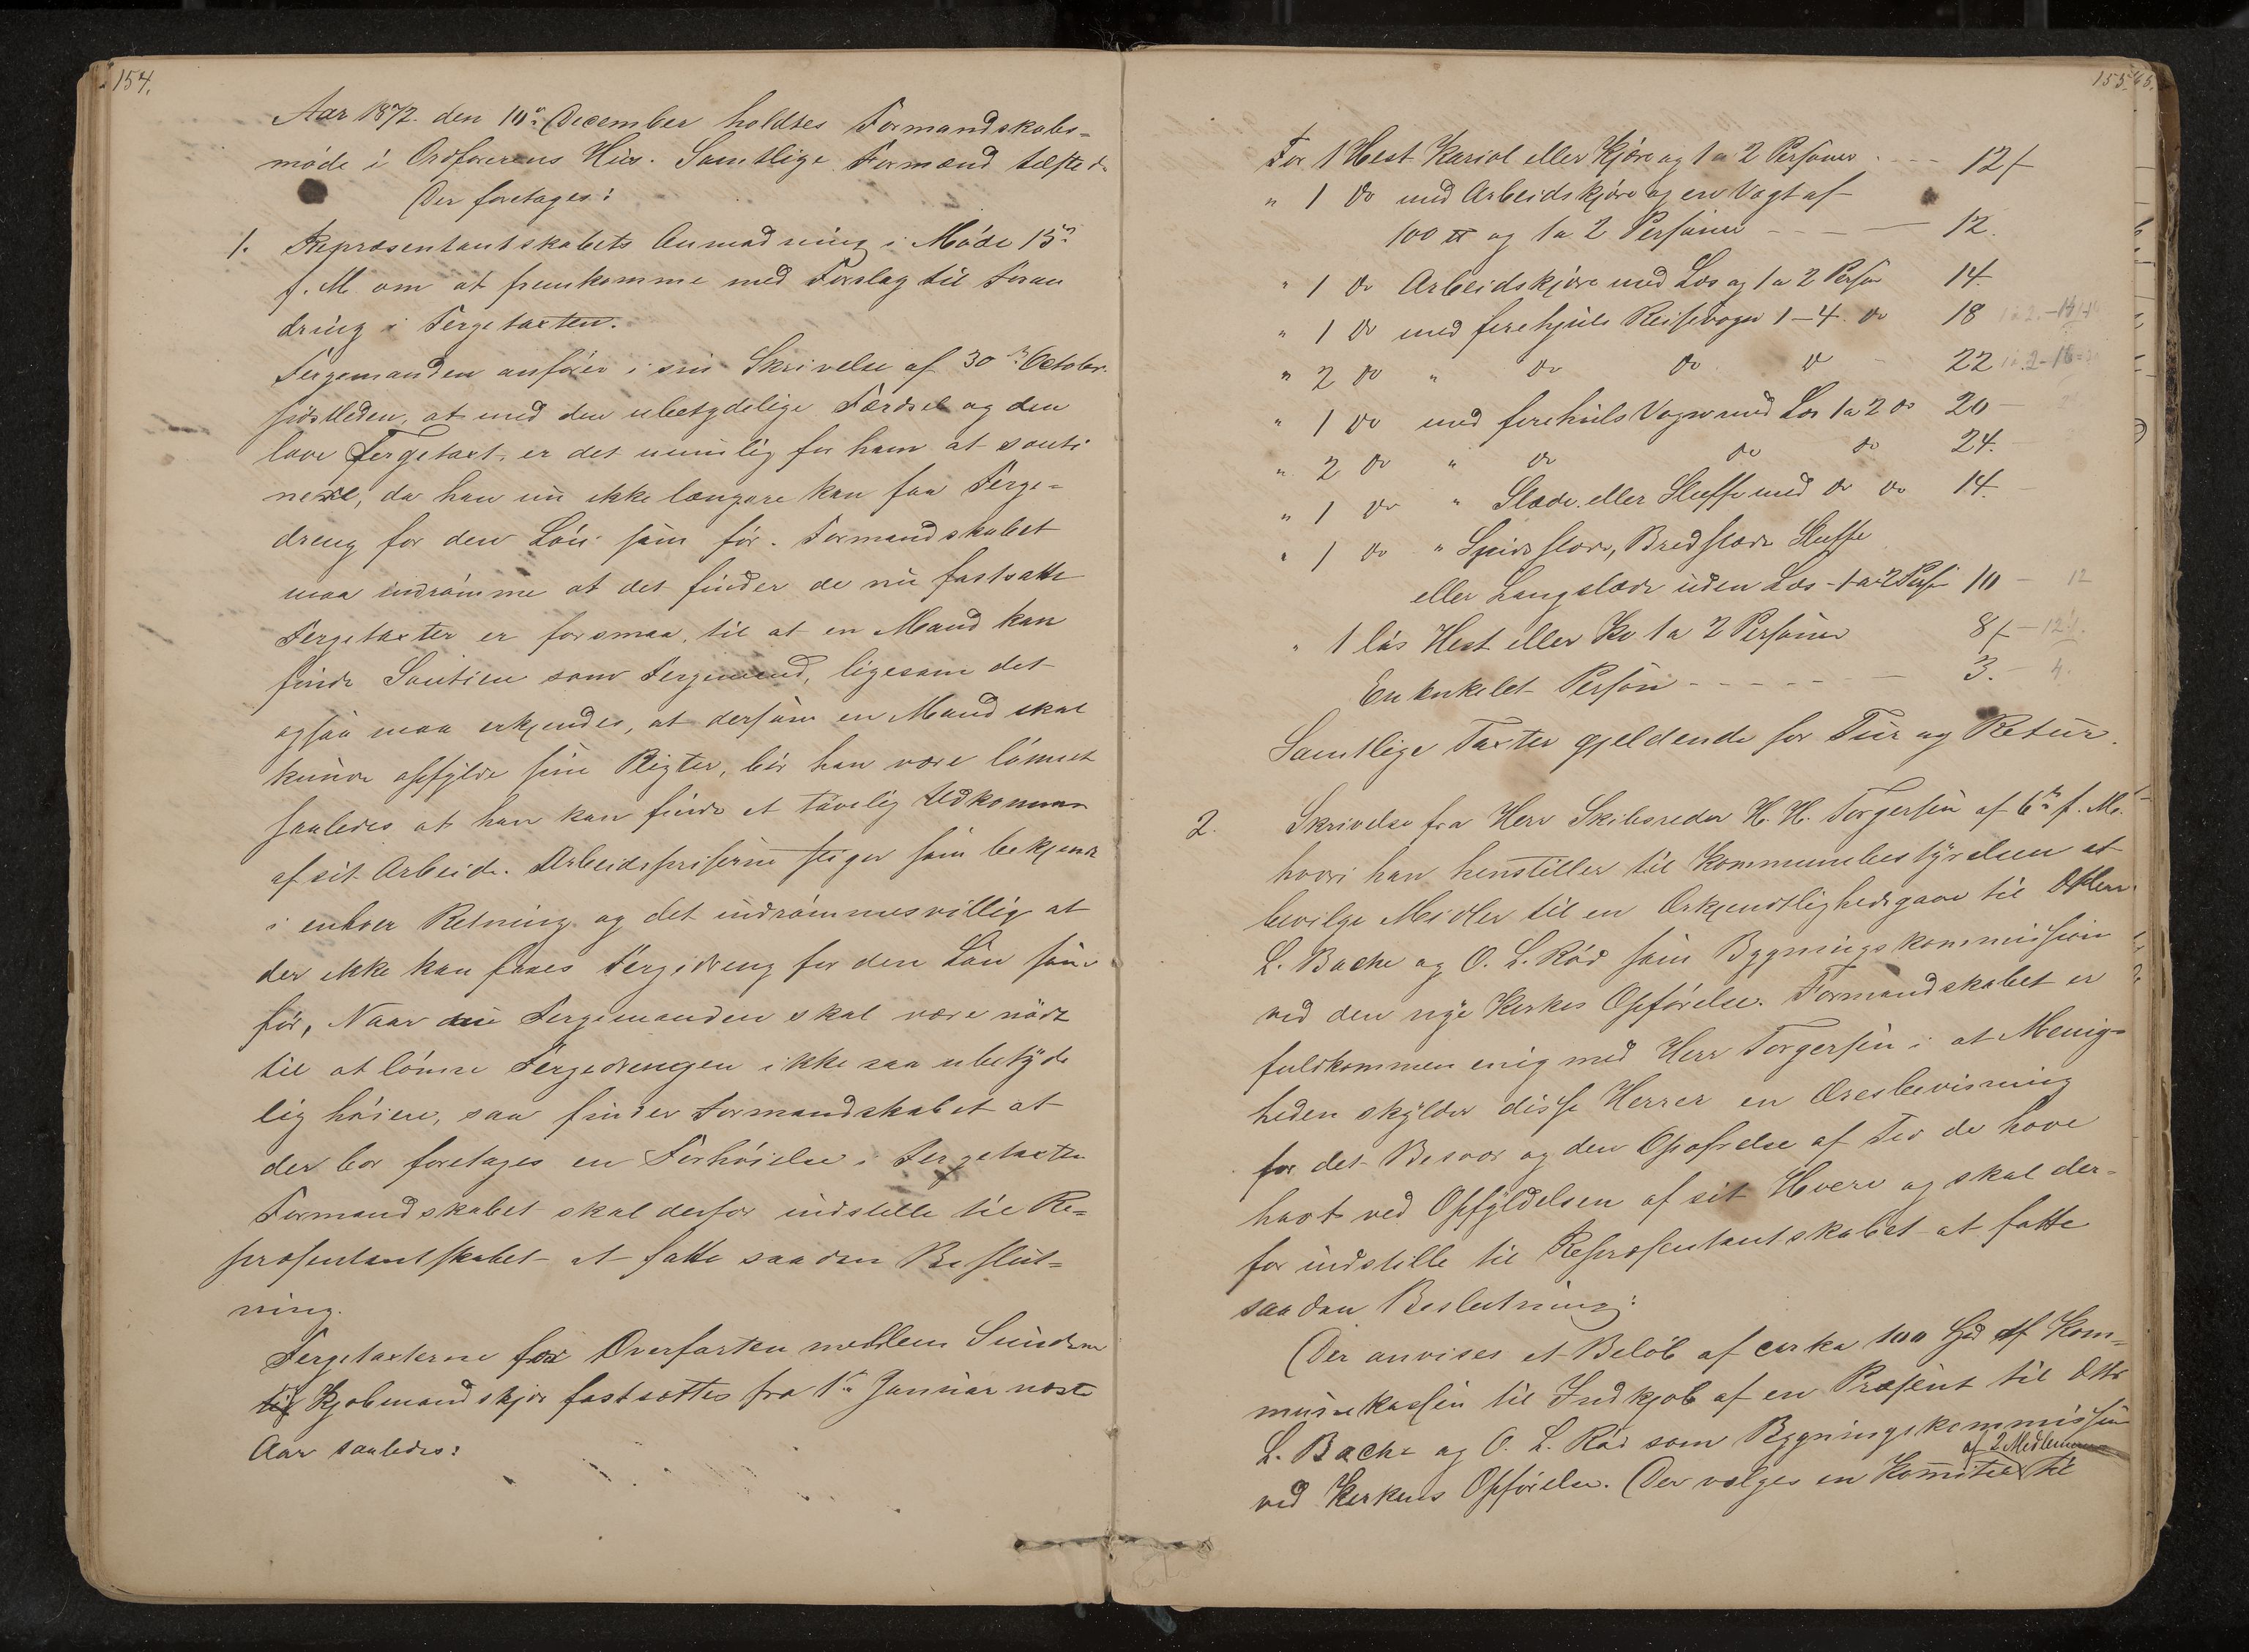 154.
Aar 1872 den 10de December holdtes Formandskabs-
møde i Ordførerens Hus. Samtlige Formænd tilsted.
Der foretages:
1. Repræsentantskabets Anmodning i Møde 15de
f. M. om at fremkomme med Forslag til Foran
dring i Fergetaxten.
Fergemanden anfører i sin Skrivelse af 30te October
sidstleden, at med den ubetydelige Færdsel og den
lave Fergetaxt er det umulig for ham at conti
nere, da han nu ikke længere kan faa Ferge-
dreng for den Løn som før. Formandskabet
maa indrømme at det finder de nu fastsatte
Fergetaxter er forsmaa til at en Mand kan
finde Soutien som Fergemand, ligesom det
ogsaa maa erkjendes, at dersom en Mand skal
kunne opfylde sine Pligter, bør han være lønnet
saaledes at han kan finde et taalelig Udkomme
af sit Arbeide. Arbeidspriserne stiger som bekjendt
i enhver Retning og det indrømmes villig at
der ikke kan faaes Fergedreng for den Løn som
før, Naar nu Fergemanden skal være nødt
til at lønne Fergedrengen ikke saa ubetyde
lig høiere, saa finder Formandskabet at
der bør foretages en Forhøielse i Fergetaxten
Formandskabet skal derfor indstille til Re-
præsentantskabet at fatte saadan Beslut-
ning.
Fergetaxterne for Overfarten mellem Sundene
til Kjøbmandskjær fastsættes fra 1ste Januar næste
Aar saaledes:
155.
For 1 Hest Kariol eller Kjøre og 1 a 2 Personer - - - 12 ß
" 1 do med Arbeidskjøre og en Vægt af
100 ℔ og 1 a 2 Personer - - - 12.
" 1 do Arbeidskjøre med Læs og 1 a 2 Person 14.
" 1 do med firehjuls Reisevogn 1-4 do 18
" 2 do " do do do - 22
" 1 do med firehjuls Vogn med Læs 1 a 2 do 20 -
" 2 do " do do do 24. -
" 1 do " Slæde eller Sluffe med do do 14. -
" 1 do " Spidsslæde, Bredslæde Sluffe
eller Langslæde uden Læs - 1 a 2 Pers 10 - 12
" 1 løs Hest eller Ko 1 a 2 Personer 8 ß - 12 ß.
En enkelt Person - - - - - - 3. - 4.
Samtlige Taxter gjeldende for Tur og Retur.
2. Skrivelse fra Herr Skibsreder H. H. Torgersen af 6te f. M.
hvori han henstiller til Kommunebestyrelsen at
bevilge Midler til en Erkjendtlighedsgave til DHerr.
L. Bache og O. L. Rød som Bygningskommission
ved den nye Kirkes Opførelse. Formandskabet er
fuldkommen enig med Herr Torgersen i at Menig-
heden skylder disse Herrer en Æresbevisning
for det Besvær og den Opofrelse af Tid de have
havt ved Opfyldelsen af sit Hverv og skal der-
for indstille til Repræsentantskabet at fatte
saadan Beslutning:
Der anvises et Beløb af cirka 100 Spd af Kom-
munekassen til Indkjøb af en Præsent til DHr
L. Bache og O. L. Rød som Bygningskommission
ved Kirkens Opførelse. Der vælges en Komitee af 2 Medlemmer til